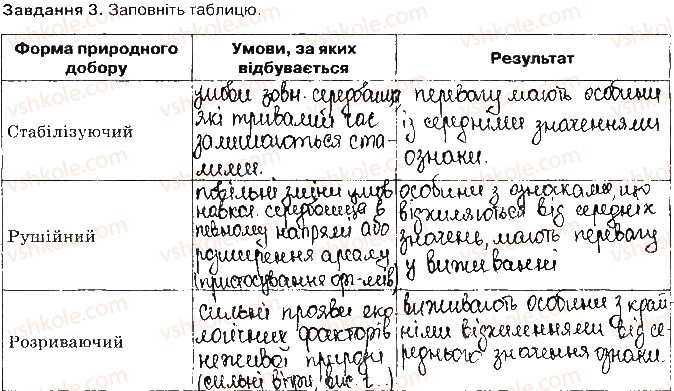 Завдання 3. Заповніть таблицю.
Форма природного добору
Умови, за яких відбувається
Результат
Стабілізуючий
умови зовн. середовища
які тривалий час
залишаються ста-
лими.
перевагу мають особини
із середніми значеннями
ознаки.
Рушійний
повільні зміни умов
навкол. середовища в
певному напрямі або
розширення ареалу
(пристосування орг-мів)
особини з ознаками, що
відхиляються від середніх
значень, мають перевагу
у виживанні
Розриваючий
сильні прояви еко
логічних факторів
неживої природи
(сильні вітри, вис. t...)
виживають особини з край-
німи відхиленнями від се-
реднього значення ознаки.
vshkole.com